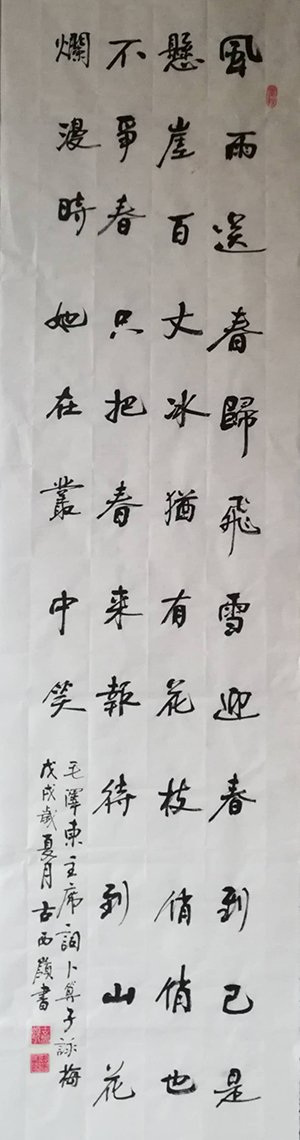 風雨送春歸飛雪迎春到已是
懸崖百丈冰猶有花枝俏俏也
不爭春只把春来報待到山花
爛漫時她在叢中笑
毛澤東主席詞卜算子詠梅
戊戌歲夏月古西嶺書